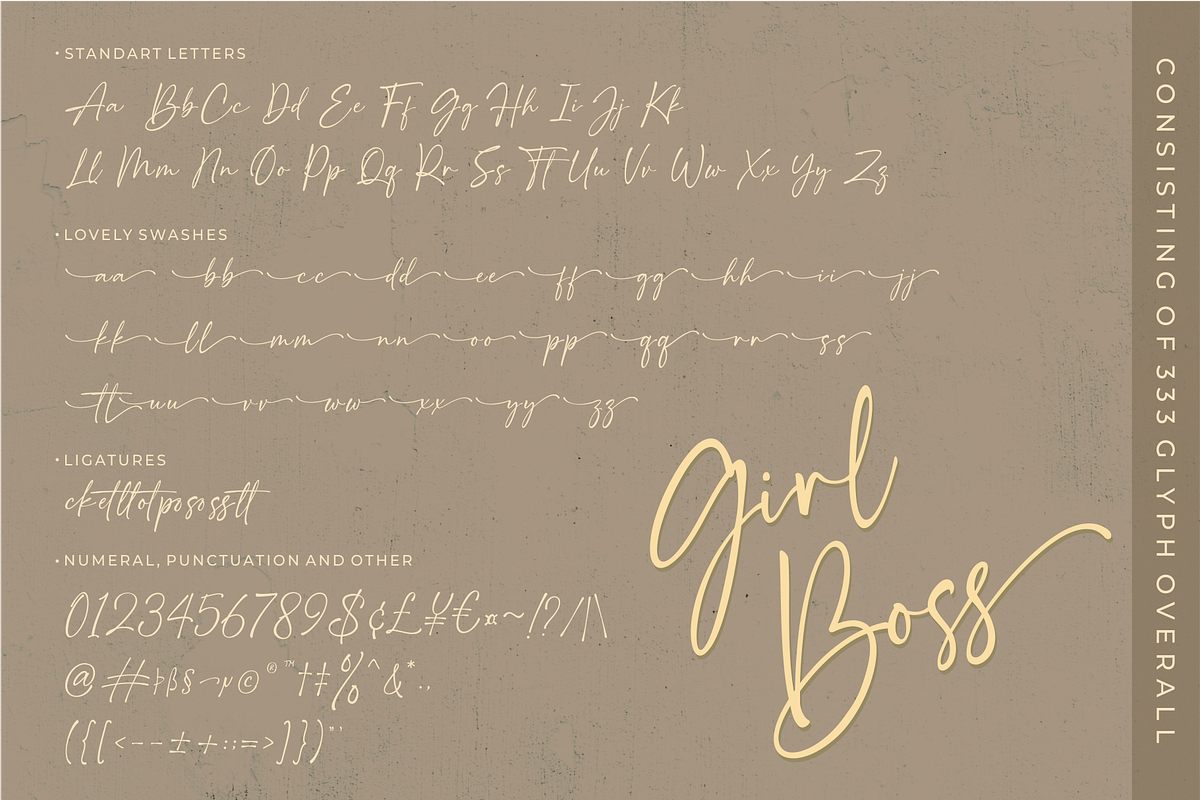 • STANDART LETTERS
Aa Bb Cc Dd Ee Ff Gg Hh Ii Jj Kk
Ll Mm Nn Oo Pp Qq Rr Ss Tt Uu Vv Ww Xx Yy Zz
• LOVELY SWASHES
aa bb cc dd ee ff gg hh ii jj
kk ll mm nn oo pp qq rr ss
tt uu vv ww xx yy zz
• LIGATURES
• NUMERAL, PUNCTUATION AND OTHER
0123456789$¢£¥€¤~!?/|\
@#þß§¬µ©®™†‡%^&*.,
({[<--±+:;=>]})"'
Girl
Boss
CONSISTING OF 333 GLYPH OVERALL